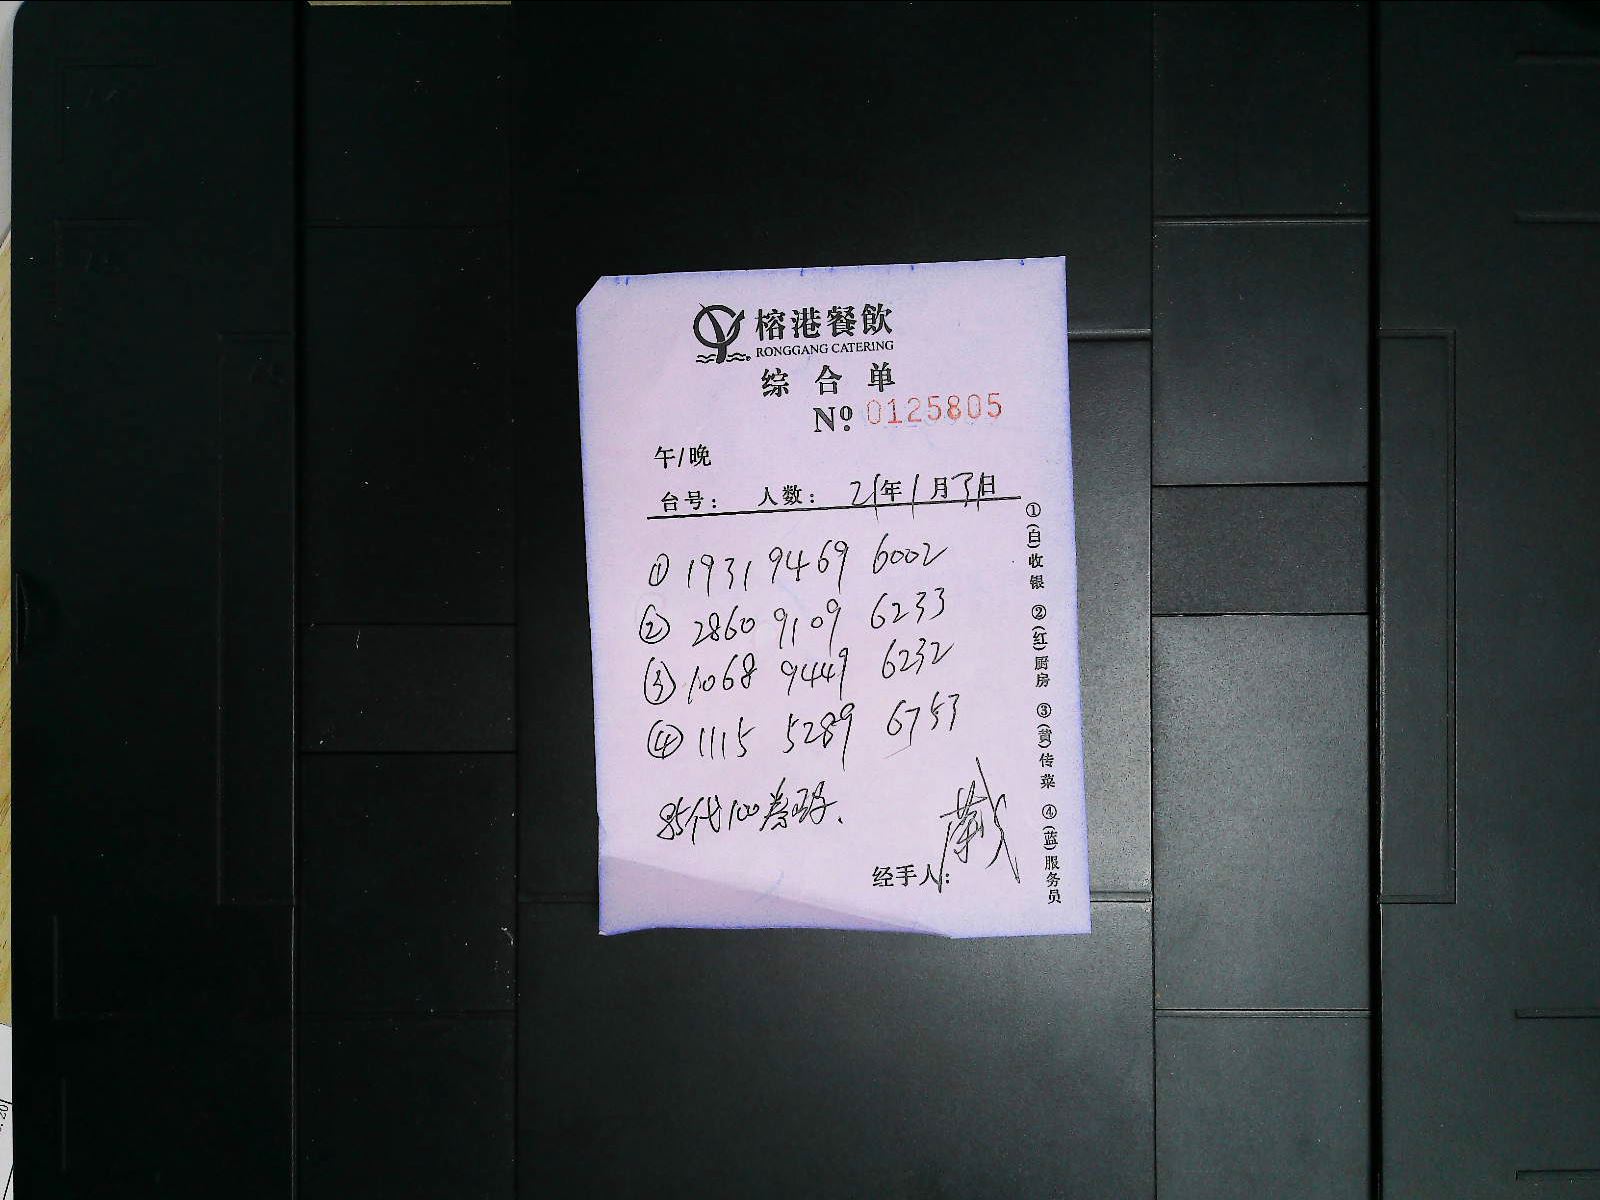 榕港餐飲
RONGGANG CATERING
综合单
Nº 0125805
午/晚
台号： 人数： 21年1月31日
① 1931 9469 6002
② 2860 9109 6233
③ 1068 9449 6232
④ 1115 5289 6753
85代100券码、
经手人：戴
①(白)收银 ②(红)厨房 ③(黄)传菜 ④(蓝)服务员